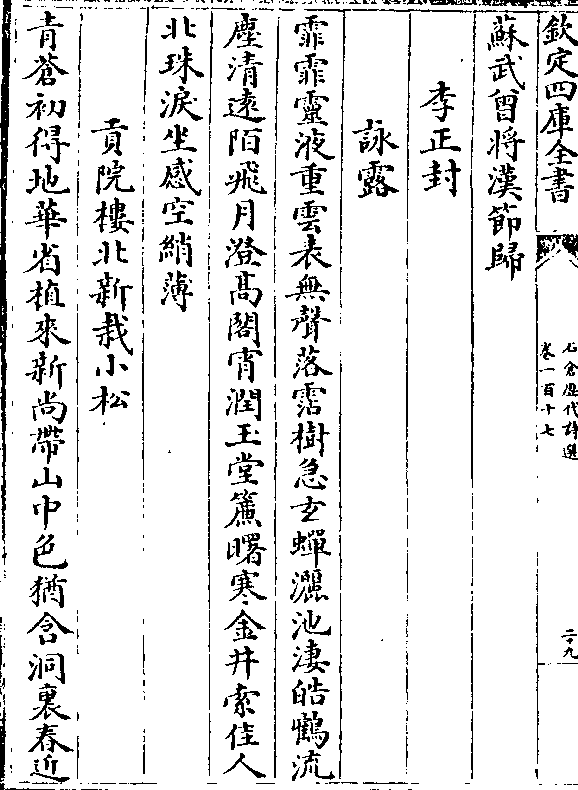 欽定四庫全書
石倉歷代詩選
卷一百十七
二九
蘇武曾將漢節歸
李正封
詠露
霏霏靈液重雲表無聲落霑樹急玄蟬灑池淒皓鶴流
塵清遠陌飛月澄高閣宵潤玉堂簾曙寒金井索佳人
北珠淚坐感空綃薄
貢院樓北新栽小松
青蒼初得地華省植來新尚帶山中色猶含洞裏春近